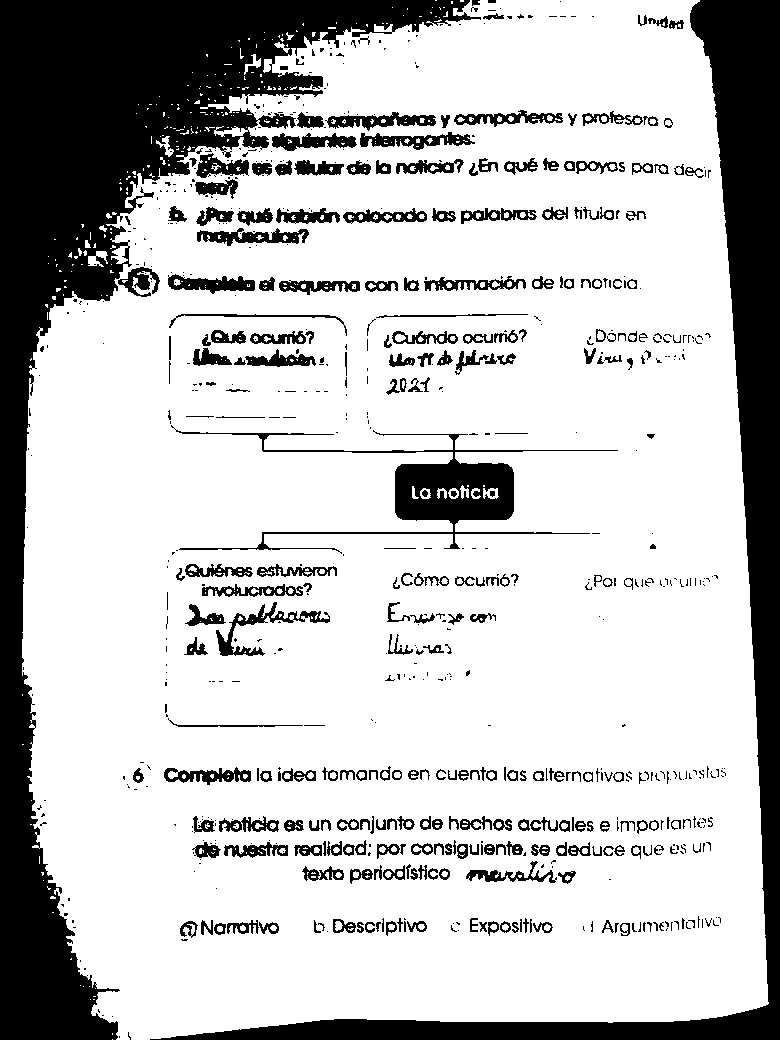 Unidad
con tus compañeras y compañeros y profesora o
las siguientes interrogantes:
a. ¿Cuál es el titular de la noticia? ¿En qué te apoyas para decir
eso?
b. ¿Por qué habrán colocado las palabras del titular en
mayúsculas?
Completa el esquema con la información de la noticia.
¿Qué ocurrió? ¿Cuándo ocurrió? ¿Dónde ocurrió?
Una inundación. Un 11 de febrero Viru, Perú
2021.
La noticia
¿Quiénes estuvieron involucrados? ¿Cómo ocurrió? ¿Por qué ocurrió?
Los pobladores Empezo con
de Virú. lluvias
6 Completa la idea tomando en cuenta las alternativas propuestas
La noticia es un conjunto de hechos actuales e importantes
de nuestra realidad; por consiguiente, se deduce que es un
texto periodístico narrativo .
a Narrativo b. Descriptivo c Expositivo d Argumentativo